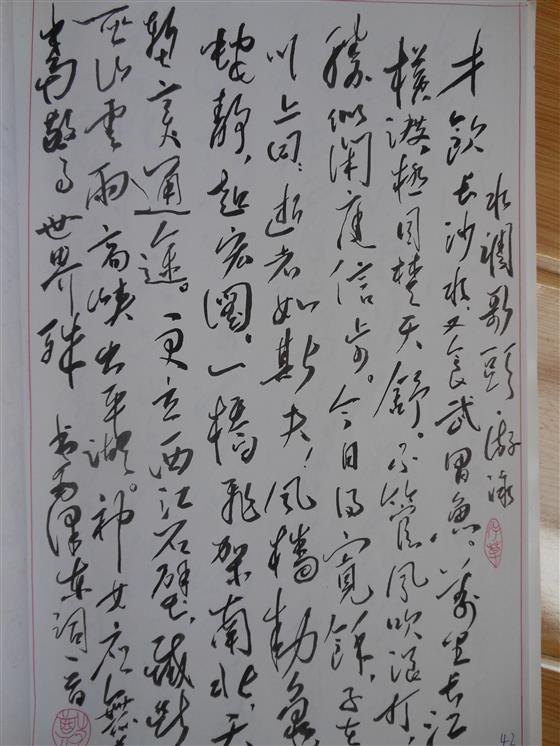 水调歌头·游泳
才饮长沙水，又食武昌鱼。万里长江
横渡，极目楚天舒。不管风吹浪打，
胜似闲庭信步。今日得宽馀，子在
川上曰：逝者如斯夫！风樯动，龟
蛇静，起宏图。一桥飞架南北，天
堑变通途。更立西江石壁，截断
巫山云雨，高峡出平湖。神女应无恙
当惊世界殊 书毛泽东词一首
42